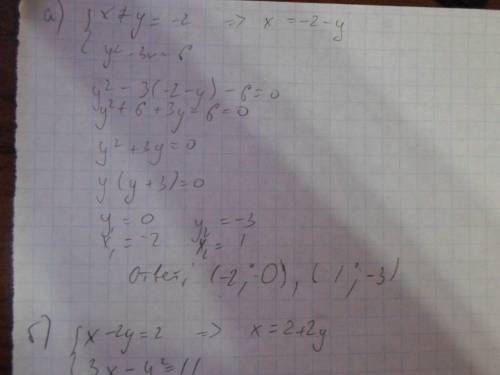 а) { x + y = -2 => x = -2 - y
{ y² - 3x - 6
y² - 3(-2-y) - 6 = 0
y² + 6 + 3y - 6 = 0
y² + 3y = 0
y (y + 3) = 0
y₁ = 0 y₂ = -3
x₁ = -2 x₂ = 1
Ответ: (-2; 0), (1; -3)
б) { x - 2y = 2 => x = 2 + 2y
{ 3x - y² = 11